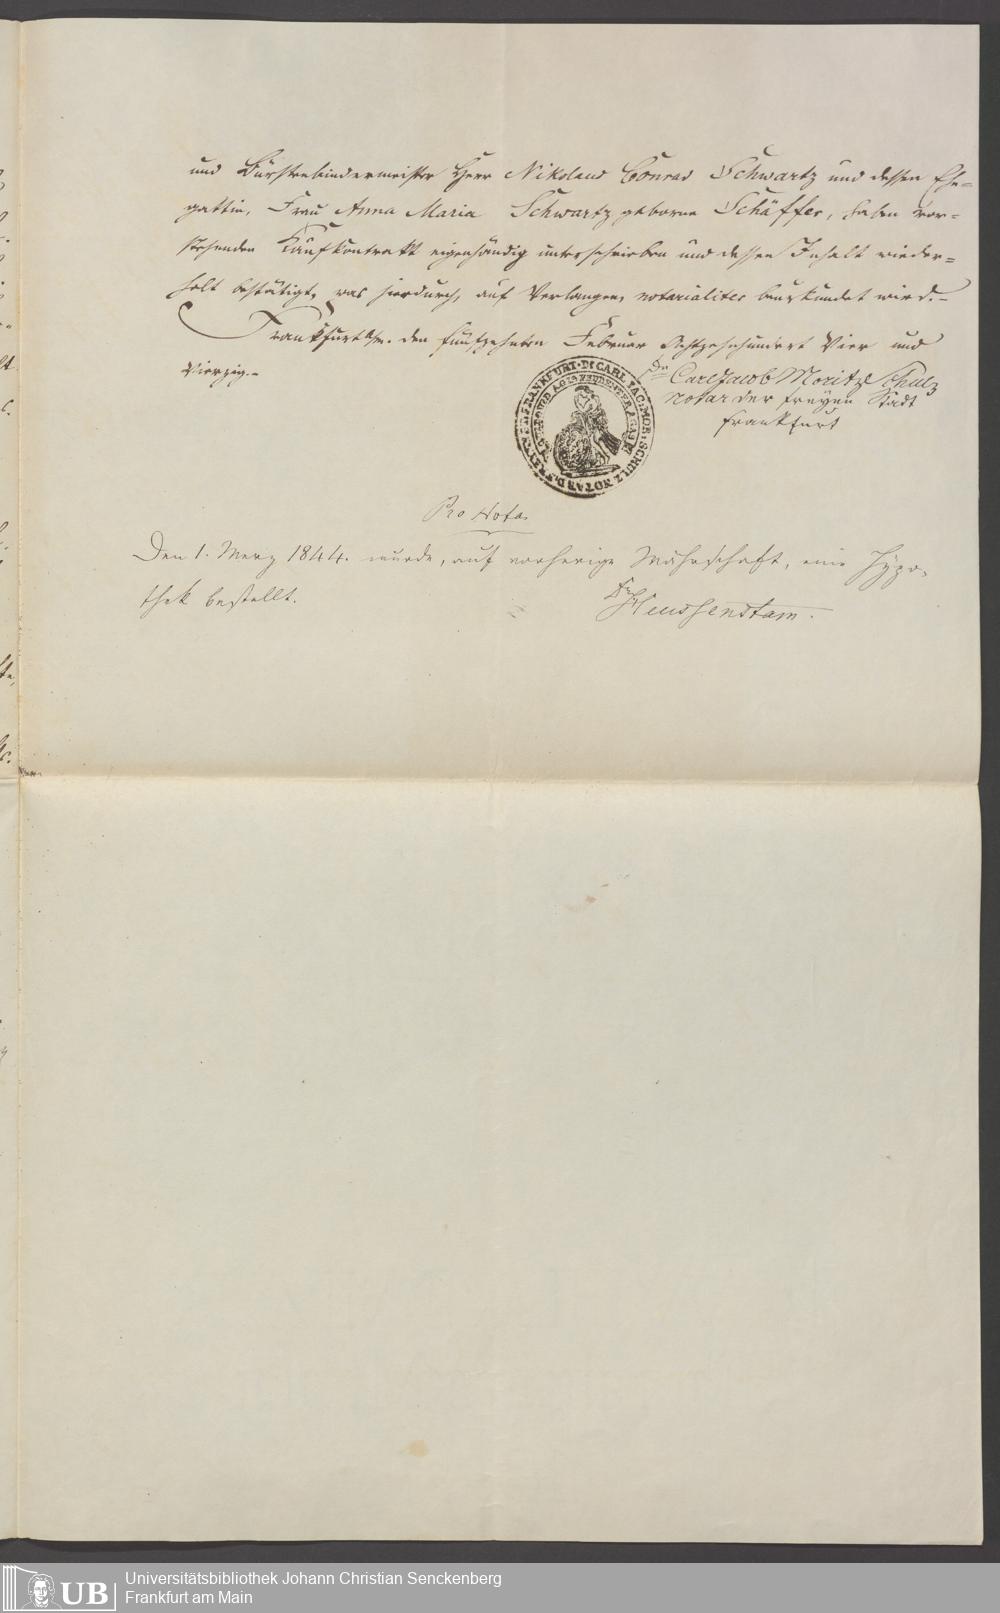 und Bürstenbindermeister Herr Nikolaus Conrad Schwartz und dessen Ehe=
gattin, Frau Anna Maria Schwartz geborne Schäffer, haben vor=
stehenden Kaufkontrakt eigenhändig unterschrieben und dessen Inhalt wieder=
holt bestätigt, was hierdurch, auf Verlangen, notarialiter beurkundet wird.-
Frankfurt a/m. den fünfzehnten Februar Achtzehnhundert Vier und
Vierzig.-
Dr Carl Jacob Moritz Schulz
Notar der freyen Stadt
Frankfurt
Dr CARL JAC: MOR: SCHULZ NOTAR D. FREYEN STADT FRANKFURT
Pro Nota
Den 1. Merz 1844. wurde, auf vorherige Währschaft, eine Hypo-
thek bestellt.
Dr Heussenstam.
UB
Universitätsbibliothek Johann Christian Senckenberg
Frankfurt am Main